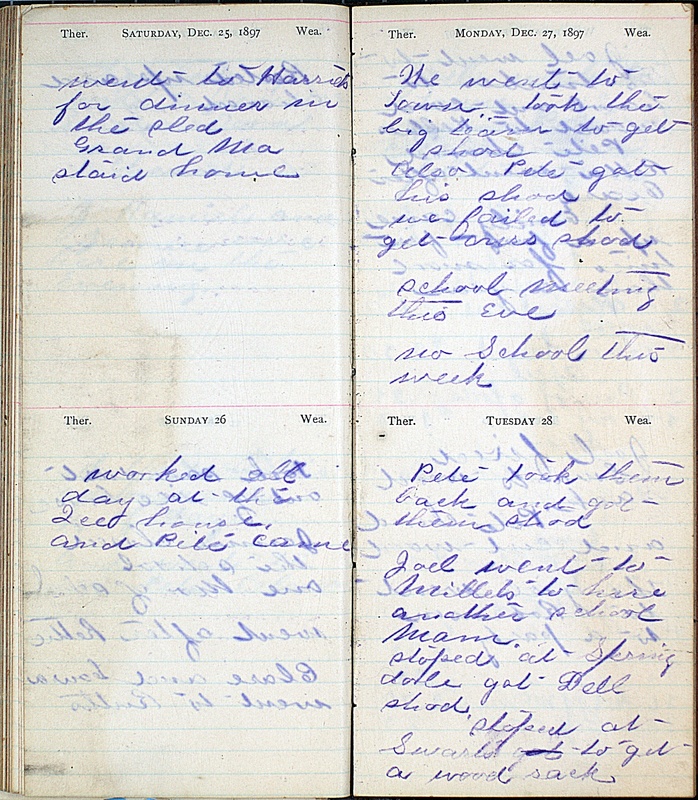 Ther. SATURDAY, DEC. 25, 1897 Wea.
went to Harriets
for dinner in
the sled
Grand Ma
staid home
Ther. SUNDAY 26 Wea.
worked all
day at the
Ice house,
and Pete came
Ther. MONDAY, DEC. 27, 1897 Wea.
He went to
town took the
big team to get
shod
Also Pete got
his shod
we failed to
get ours shod
school meeting
this Eve
no School this
week
Ther. TUESDAY 28 Wea.
Pete took them
back and got
them shod
Joel went to
Millets to hire
another school
Mam.
stoped at Spring
dale got Dell
shod.
stoped at
Swarts got to get
a wood rack